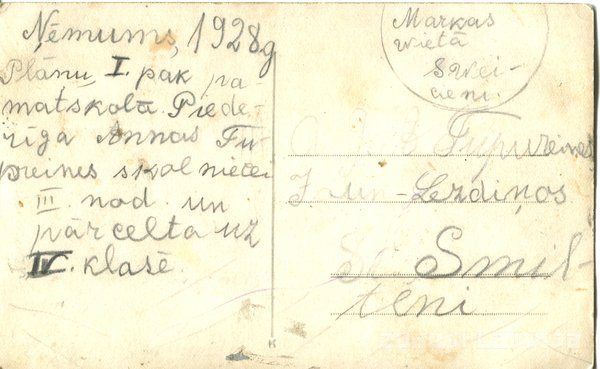 Ņēmums, 1928g
Plānu, I. pak pa-
matskolā Piede-
rīga Annas Tu-
preines skolniecei
III nod un
pārcelta uz
IV. klasē.
Markas
vietā
Swei-
cieni.
Tupureines
Lezdiņos
Smil-
teni
K